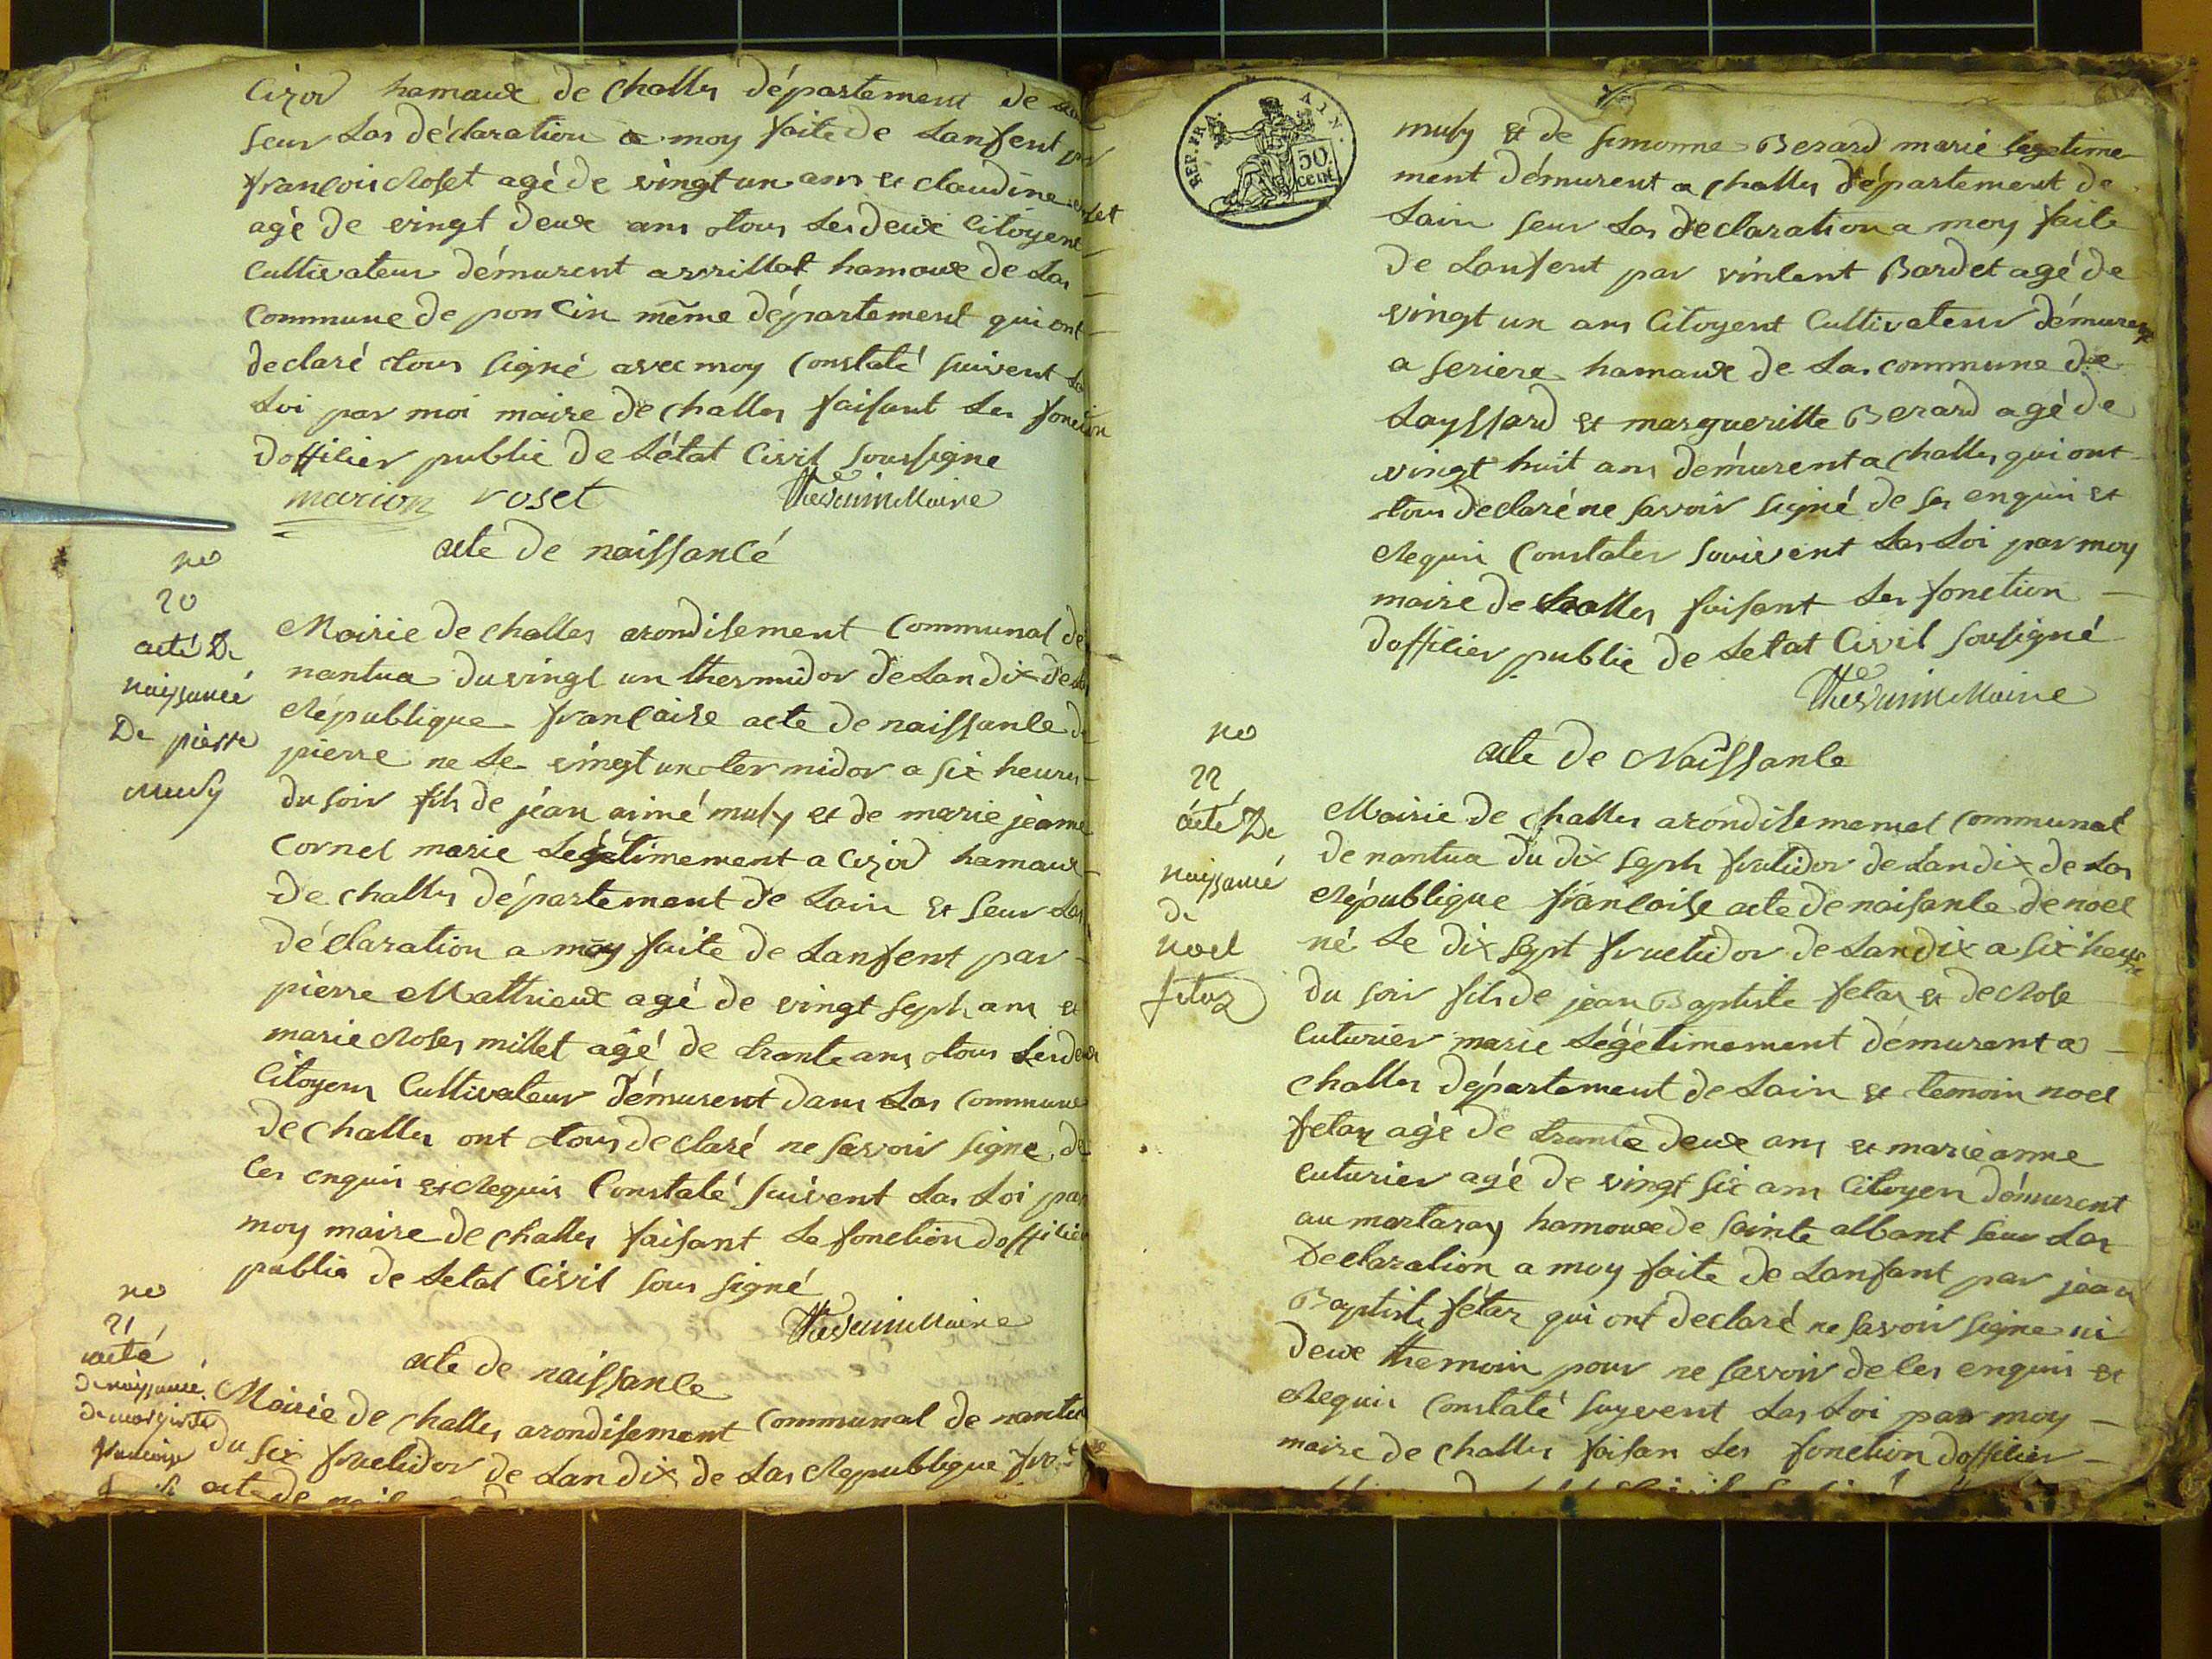 Cizod hamaux de Challes département de
seur Las déclaration a moy faite de Lanfent par
françois Roset agé de vingt un ans et claudine
agé de vingt deux ans tous Les deux Citoyent
Cultivateur démurent a hamaux de Las
Commune de poncin même département qui ont
declaré tous signé avec moy Constaté suivent La
Loi par moi maire de challes faisant Les fonction
doffilier public de Létat Civil soussigne
marion roset maire
acte de naissancé
no
20
acté De
naissancé
De pierre
musy
Mairie de challes arondisement Communal de
nantua du vingt un thermidor de Landix de La
République françaire acte de naissanle de
pierre ne Le vingt un termidor a six heures
du soir fils de jéan aimé musy et de marie jeanne
Cornet marie Légétimement a Cizod hamaux
de challes département de Lain et seur Las
déclaration a moy faite de Lanfent par
pierre Mathieux agé de vingt seph ans et
marie Roses millet agé de trante ans tous Lesdeux
Citoyens Cultivateur démurent dans Las Commune
de challes ont tous declaré ne savoir signe de
Ces enquis et Requis Constaté suivent Las Loi par
moy maire de challes faisant Le fonction doffilier
public de Letat Civil sous signé
maire
no
21
acté
de naissancé
acte de naissance
Mairie de challes arondisement Communal de nantua
du six fructidor de Landix de Las Republique
acte de
REP. FRA. AIN.
50 cent.
musy et de simonne Berard marié legetime
ment démurent a challes département de
Lain seur Las declaration a moy faite
de Lanfent par vinlent Bardet agé de
vingt un ans Citoyent Cultivateur démurent
a seriere hamaux de Las commune de
Layssard et margueritte Berard agé de
vingt huit ans demurent a challes qui ont
tous declaré ne savoir signé de ses enquis et
Requis Constater souivent Las Loi par moy
maire de challes faisant Les fonction
doffilier public de Letat Civil sousigné
maire
no
22
acté De
naissancé
de
noel
fétaz
acte de Naissanle
Mairie de challes arondisement Communal
de nantua du dix seph frutidor de Landix de Las
République françoise acte de naisanle de noel
né Le dix sept fructidor de Landix a six heure
du soir fils de jean Baptiste fetaz et de Rose
Cuturier marie Légétimement démurent a
challes département de Lain et temoin noel
fetaz agé de trante deux ans et marieanne
Cuturier agé de vingt six ans Citoyen démurent
au mortaray hamouxe de sainte albant seur Las
Declaration a moy faite de Lanfant par jean
Baptiste fétaz qui ont declaré ne savoir signe ni
deux themoin pour ne savoir de les enquis et
Requis Constaté suyvent Las Loi par moy
maire de challes foisan Les fonction doffilier